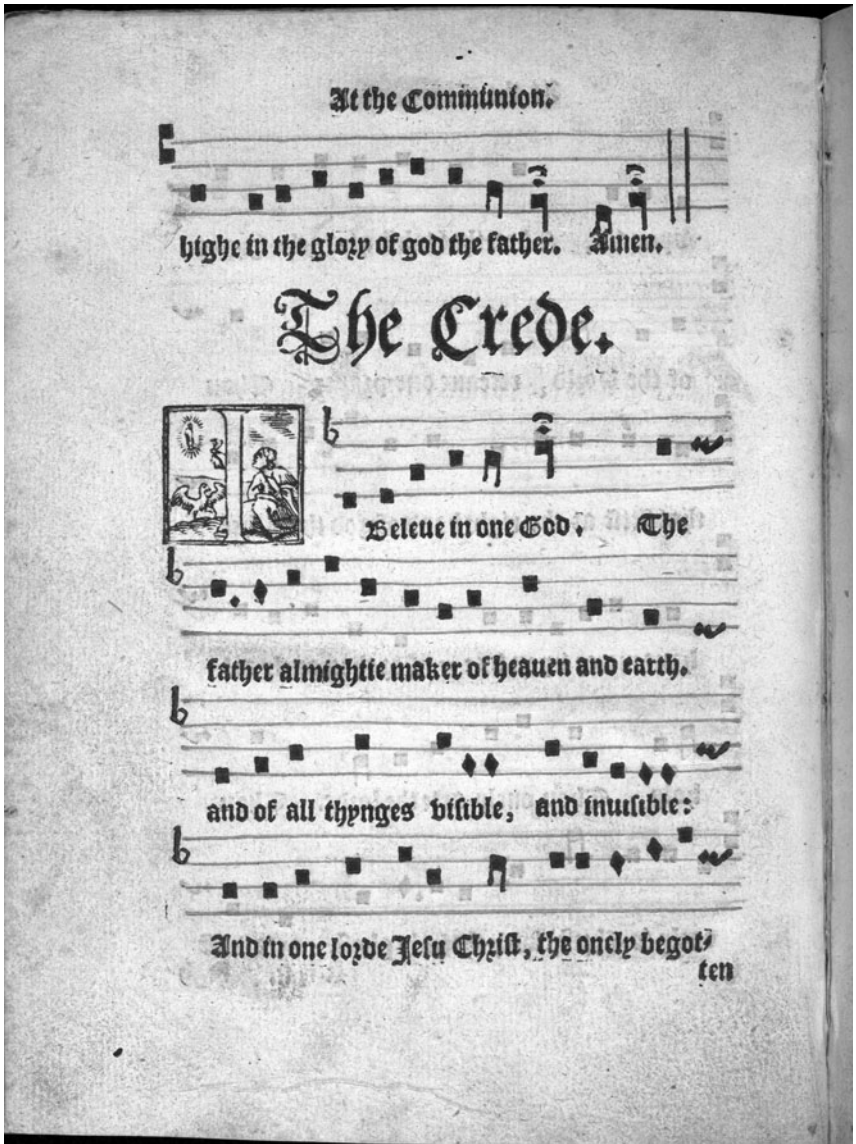 At the Communion.
highe in the glory of god the father. Amen.
The Crede.
I Beleue in one God. The
father almightie maker of heauen and earth.
and of all thynges visible, and inuisible:
And in one lorde Jesu Christ, the onely begot⸗
ten